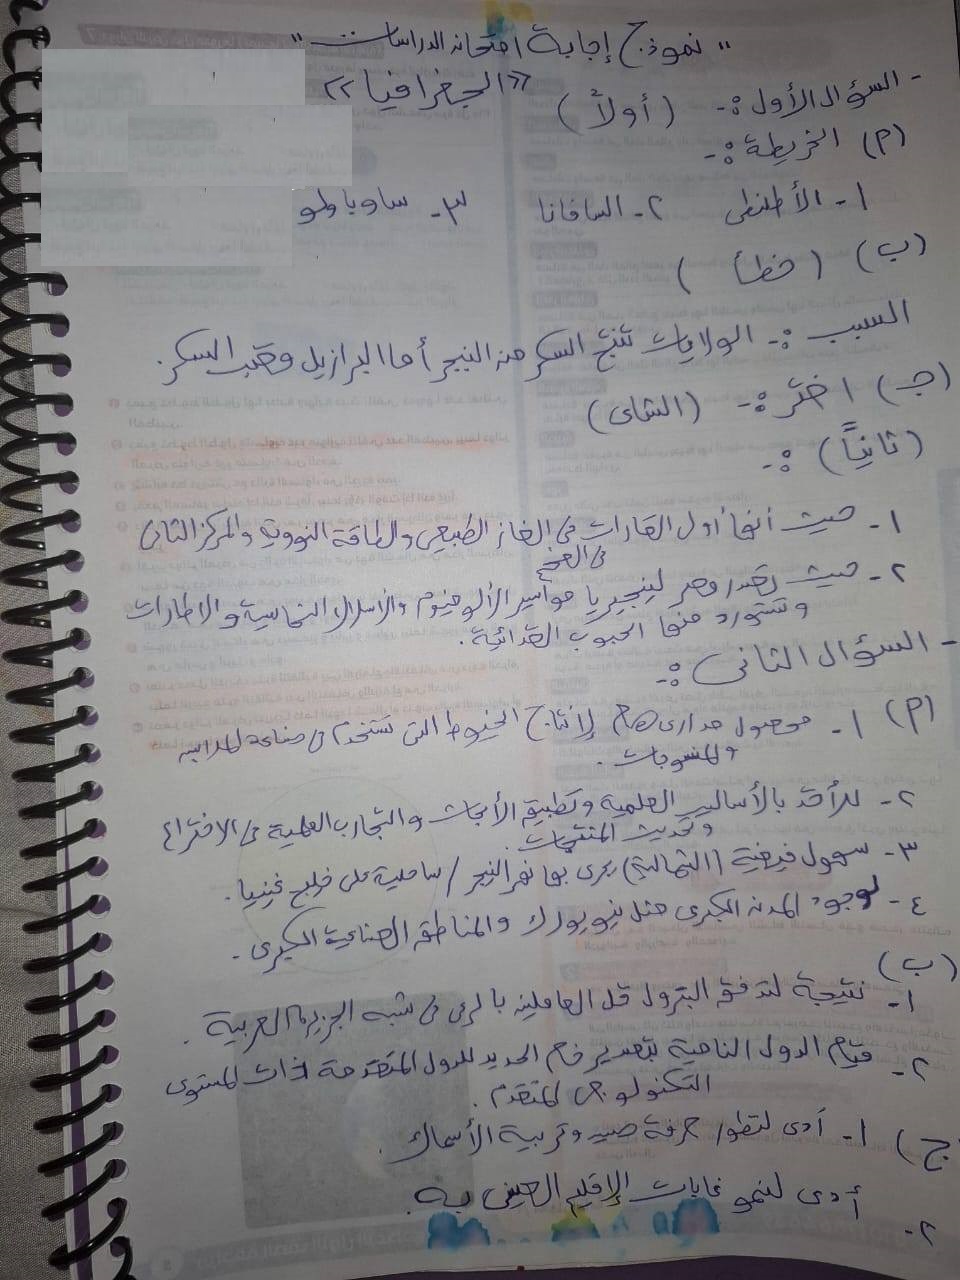 " نموذج إجابة امتحان الدراسات "
«الجغرافيا»
- السؤال الأول :- (أولاً)
(م) الخريطة :-
١- الأطلنطى ٢- السافانا ٣- ساوباولو
(ب) (خطأ)
السبب :- الولايات تنتج السكر من البنجر أما البرازيل قصب السكر.
(جـ) اختر :- (الشاى)
(ثانياً) :-
١- حيث أنها أول القارات فى الغاز الطبيعى والطاقة النووية والمركز الثانى
فى الفحم
٢- حيث تصدر مصر لنيجيريا مواسير الألومنيوم والأسلاك النحاسية والاطارات
وتستورد منها الحبوب الغذائية.
- السؤال الثانى :-
(م) ١- محصول مدارى هام لإنتاج الخيوط التى تستخدم فى صناعة الملابس
والمنسوجات.
٢- للأخذ بالأساليب العلمية وتطبيق الأبحاث والتجارب العلمية فى الاختراع
وتحديث المنتجات.
٣- سهول فيضية (الشمالية) يجرى بها نهر النيجر / ساحلية على خليج غينيا.
٤- لوجود المدن الكبرى مثل نيويورك والمناطق الصناعية الكبرى.
(ب)
١- نتيجة لتدفق البترول قل العاملين بالرعى فى شبه الجزيرة العربية.
٢- قيام الدول النامية بتصدير خام الحديد للدول المتقدمة ذات المستوى
التكنولوجى المتقدم.
ج) ١- أدى لتطور حرفة صيد وتربية الأسماك.
٢- أدى لنمو غابات الإقليم الصينى به.